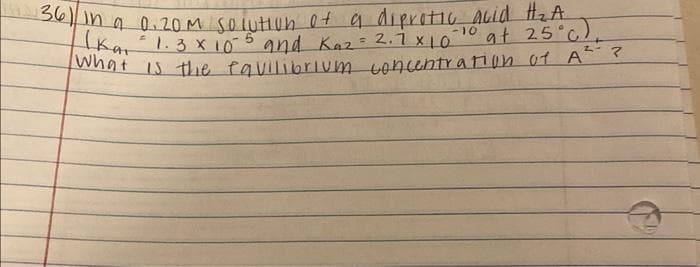 36) In a 0.20M solution of a diprotic acid H₂A
(Ka₁ = 1.3 x 10⁻⁵ and Ka2 = 2.7 x10⁻¹⁰ at 25°C),
What is the equilibrium concentration of A²⁻ ?